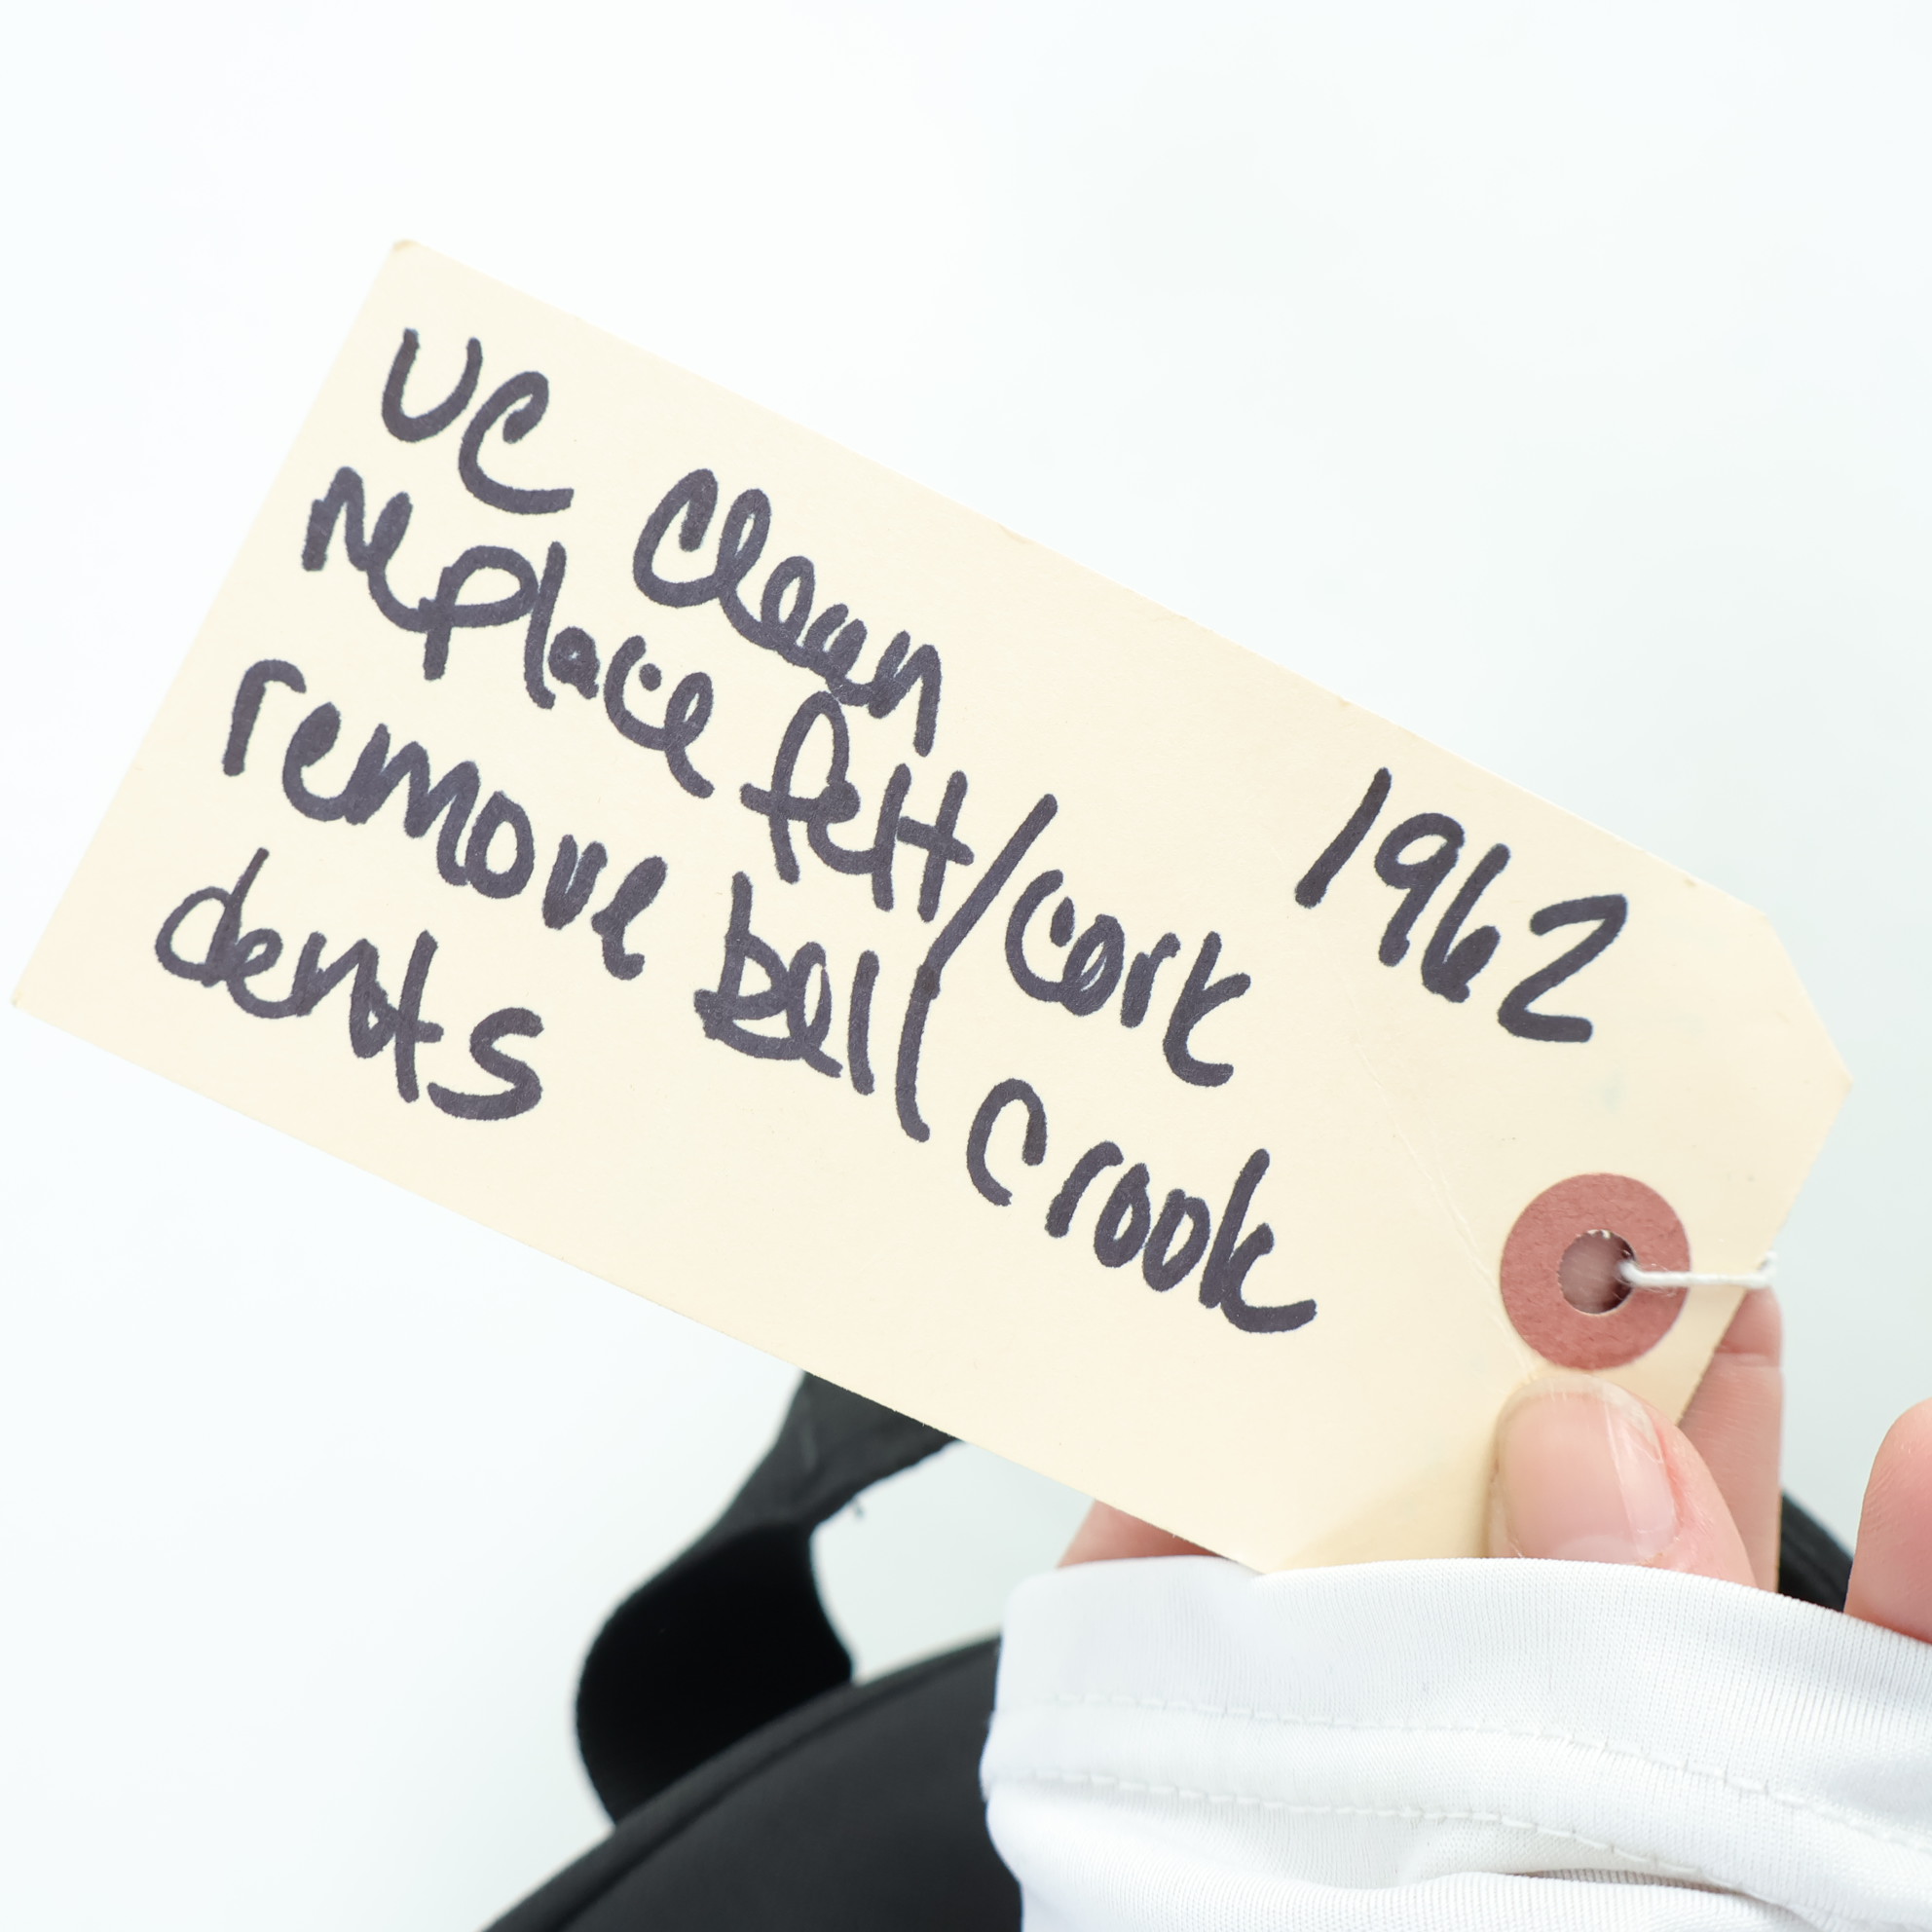 UC Clean
replace felt/cork
remove bell/crook
dents
1962